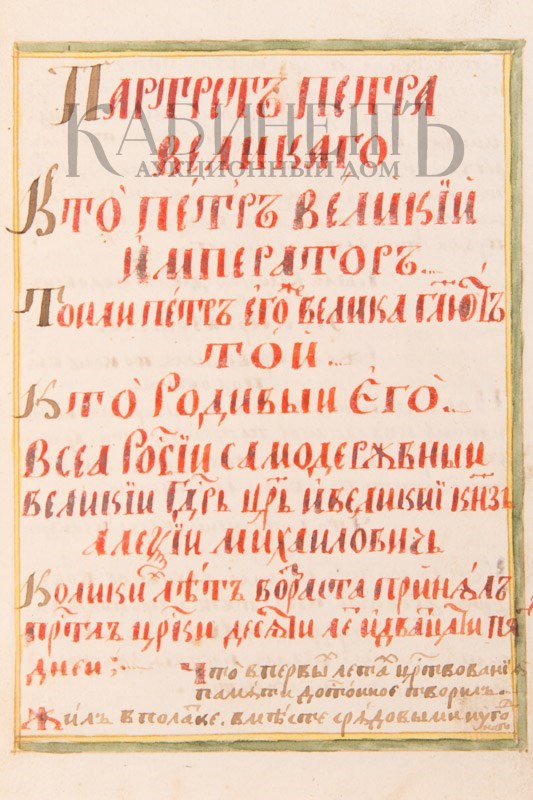 Партретъ Петра
Великаго
КАБИНЕТЪ
АУКЦИОННЫЙ ДОМ
Кто Петръ Великій
императоръ
Той ли Петръ его же велика глютъ
той
Кто родивыи его
Всеа Росіи самодержъный
великіи Гдрь црь и великиі кнзь
Алеѯіи Михаиловичъ
Колики лѣтъ возраста принялъ
прстлъ цркіи десяти ле и двацати пя
дней
Что в первы лета црствованія
памяти достоиное творилъ
Жилъ в полаке, вместе с рядовыми